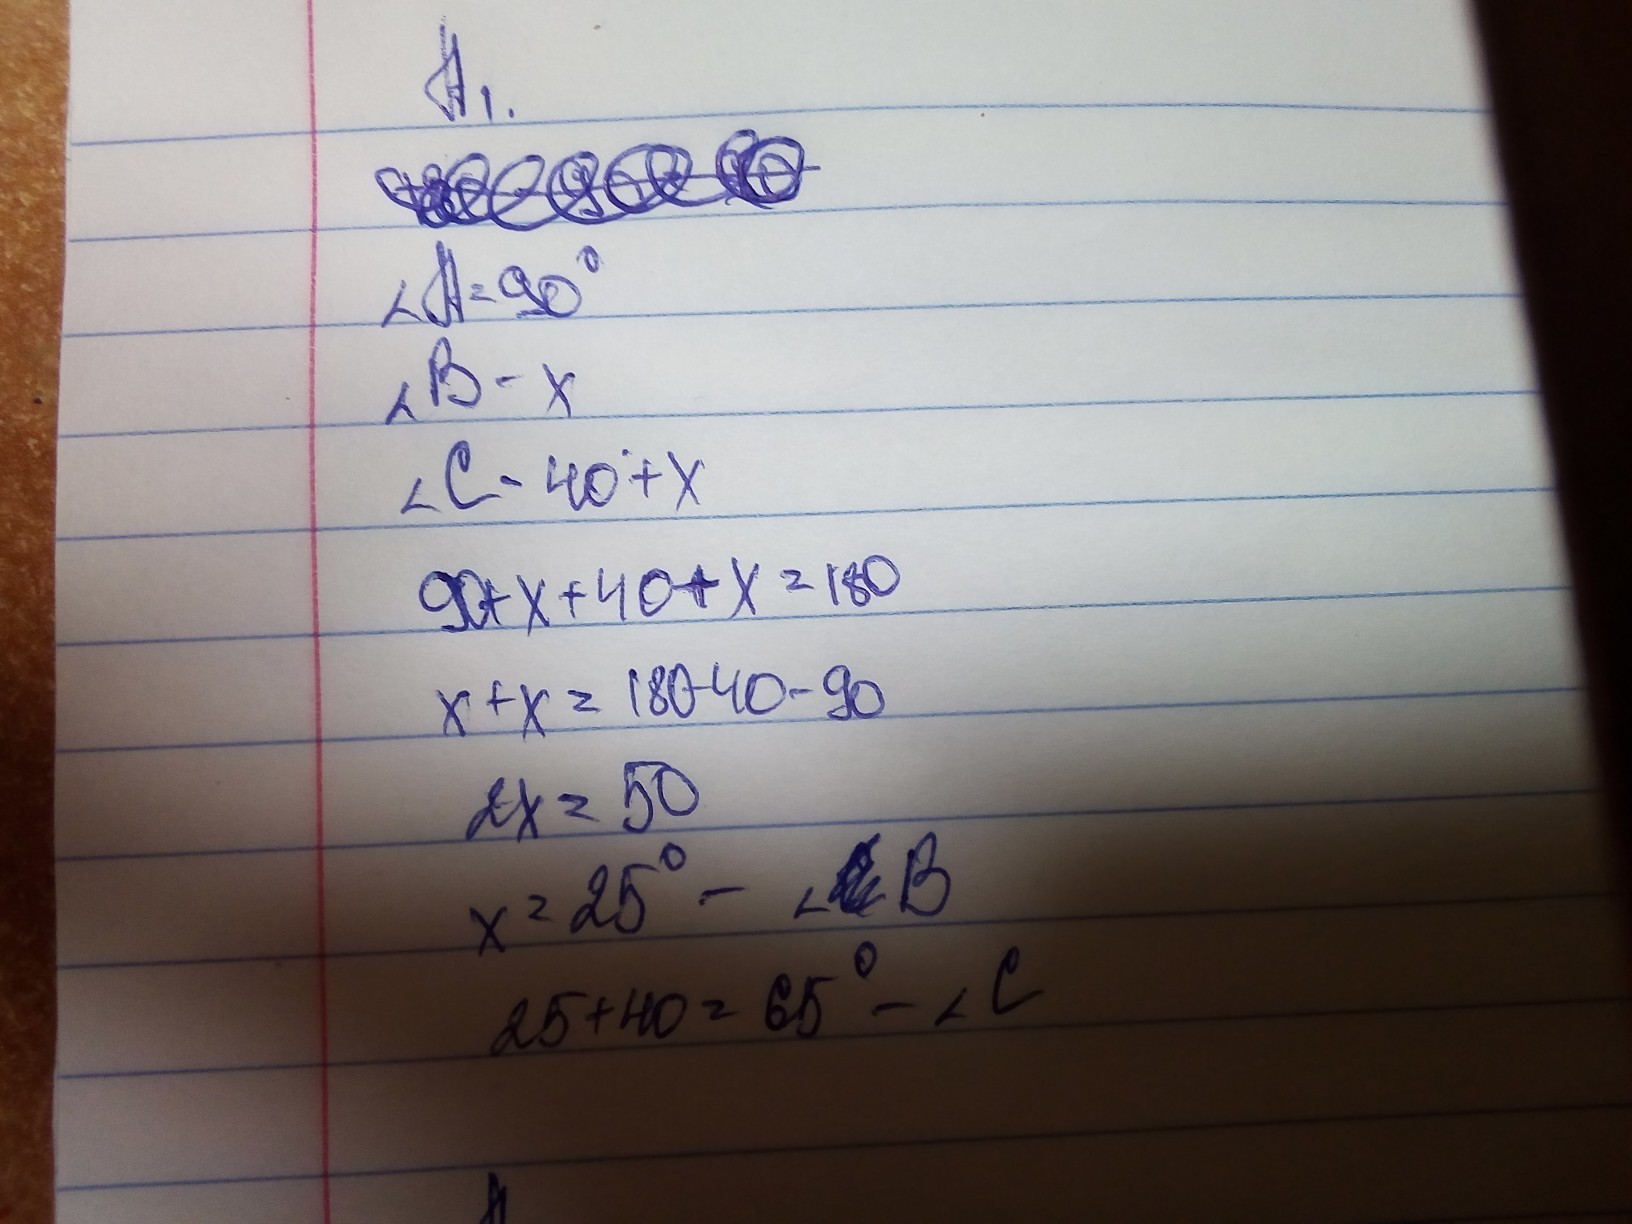 A1.
∠A=90°
∠B - x
∠C - 40°+x
90+x+40+x=180
x+x=180-40-90
2x=50
x=25° - ∠B
25+40=65° - ∠C